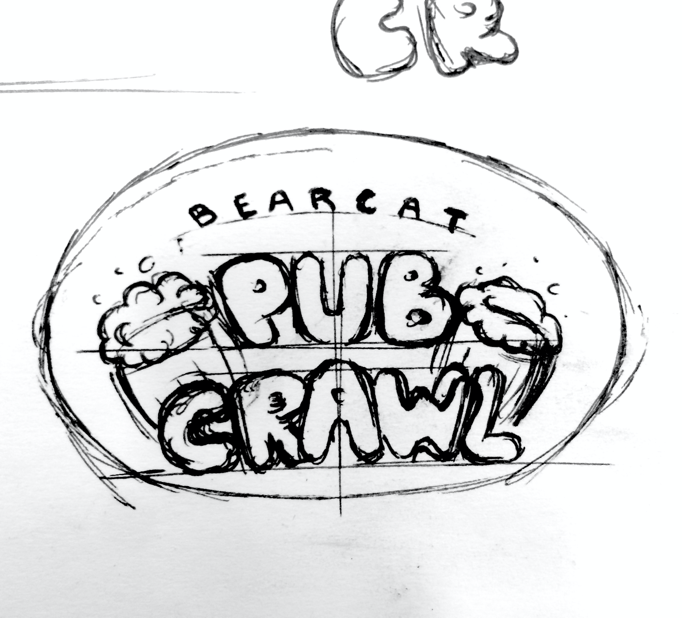 CR
BEARCAT
PUB
CRAWL